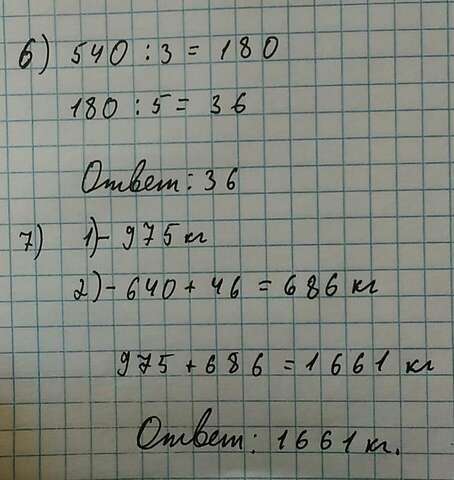 6) 540 : 3 = 180
180 : 5 = 36
Ответ: 36
7) 1) - 975 кг
2) - 640 + 46 = 686 кг
975 + 686 = 1661 кг
Ответ: 1661 кг.